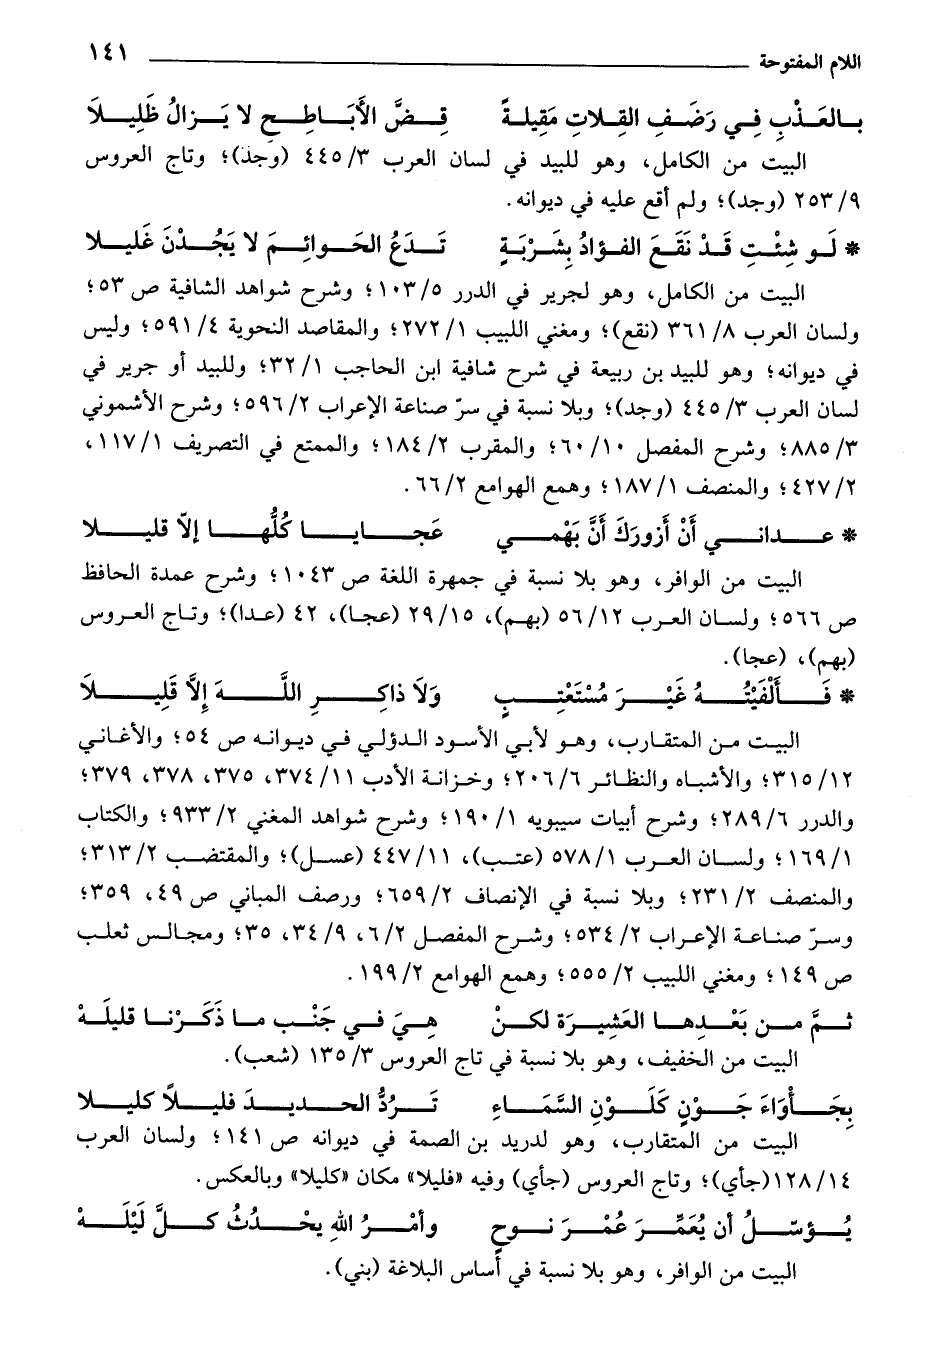 اللام المفتوحة ١٤١
بالعَذْبِ فِي رَضَفِ القِلاتِ مَقِيلةً قِضَّ الأَبَاطِحِ لا يَزالُ ظَلِيلاَ
البيت من الكامل، وهو للبيد في لسان العرب ٣/ ٤٤٥ (وجد)؛ وتاج العروس
٩/ ٢٥٣ (وجد)؛ ولم أقع عليه في ديوانه.
* لَو شِئْتِ قَدْ نَقَعَ الفؤادُ بِشَرْبَةٍ تَدَعُ الحَوائِمَ لا يَجُدْنَ غَليلا
البيت من الكامل، وهو لجرير في الدرر ٥/ ١٠٣؛ وشرح شواهد الشافية ص ٥٣؛
ولسان العرب ٨/ ٣٦١ (نقع)؛ ومغني اللبيب ١/ ٢٧٢؛ والمقاصد النحوية ٤/ ٥٩١؛ وليس
في ديوانه؛ وهو للبيد بن ربيعة في شرح شافية ابن الحاجب ١/ ٣٢؛ وللبيد أو جرير في
لسان العرب ٣/ ٤٤٥ (وجد)؛ وبلا نسبة في سرّ صناعة الإعراب ٢/ ٥٩٦؛ وشرح الأشموني
٣/ ٨٨٥؛ وشرح المفصل ١٠/ ٦٠؛ والمقرب ٢/ ١٨٤؛ والممتع في التصريف ١/ ١١٧،
٢/ ٤٢٧؛ والمنصف ١/ ١٨٧؛ وهمع الهوامع ٢/ ٦٦.
* عداني أَنْ أَزورَكَ أَنَّ بَهْمِي عَجايا كُلُّها إلاّ قليلا
البيت من الوافر، وهو بلا نسبة في جمهرة اللغة ص ١٠٤٣؛ وشرح عمدة الحافظ
ص ٥٦٦؛ ولسان العرب ١٢/ ٥٦ (بهم)، ١٥/ ٢٩ (عجا)، ٤٢ (عدا)؛ وتاج العروس
(بهم)، (عجا).
* فَأَلْفَيْتُهُ غَيْرَ مُسْتَعْتِبٍ وَلاَ ذاكِرِ اللَّهَ إِلاَّ قَلِيلاَ
البيت من المتقارب، وهو لأبي الأسود الدؤلي في ديوانه ص ٥٤؛ والأغاني
١٢/ ٣١٥؛ والأشباه والنظائر ٦/ ٢٠٦؛ وخزانة الأدب ١١/ ٣٧٤، ٣٧٥، ٣٧٨، ٣٧٩؛
والدرر ٦/ ٢٨٩؛ وشرح أبيات سيبويه ١/ ١٩٠؛ وشرح شواهد المغني ٢/ ٩٣٣؛ والكتاب
١/ ١٦٩؛ ولسان العرب ١/ ٥٧٨ (عتب)، ١١/ ٤٤٧ (عسل)؛ والمقتضب ٢/ ٣١٣؛
والمنصف ٢/ ٢٣١؛ وبلا نسبة في الإنصاف ٢/ ٦٥٩؛ ورصف المباني ص ٤٩، ٣٥٩؛
وسرّ صناعة الإعراب ٢/ ٥٣٤؛ وشرح المفصل ٢/ ٦، ٩/ ٣٤، ٣٥؛ ومجالس ثعلب
ص ١٤٩؛ ومغني اللبيب ٢/ ٥٥٥؛ وهمع الهوامع ٢/ ١٩٩.
ثمَّ من بَعْدِها العَشِيرَة لكنْ هِيَ في جَنْبِ ما ذَكَرْنا قليلَهْ
البيت من الخفيف، وهو بلا نسبة في تاج العروس ٣/ ١٣٥ (شعب).
بِجَأْوَاءَ جَوْنٍ كَلَوْنِ السَّمَاءِ تَرُدُّ الحديدَ فليلاً كليلا
البيت من المتقارب، وهو لدريد بن الصمة في ديوانه ص ١٤١؛ ولسان العرب
١٤/ ١٢٨(جأي)؛ وتاج العروس (جأي) وفيه «فليلا» مكان «كليلا» وبالعكس.
يُؤمّلُ أن يُعَمَّرَ عُمْرَ نوحٍ وأمْرُ الله يحْدُثُ كلَّ لَيْلَهْ
البيت من الوافر، وهو بلا نسبة في أساس البلاغة (بني).